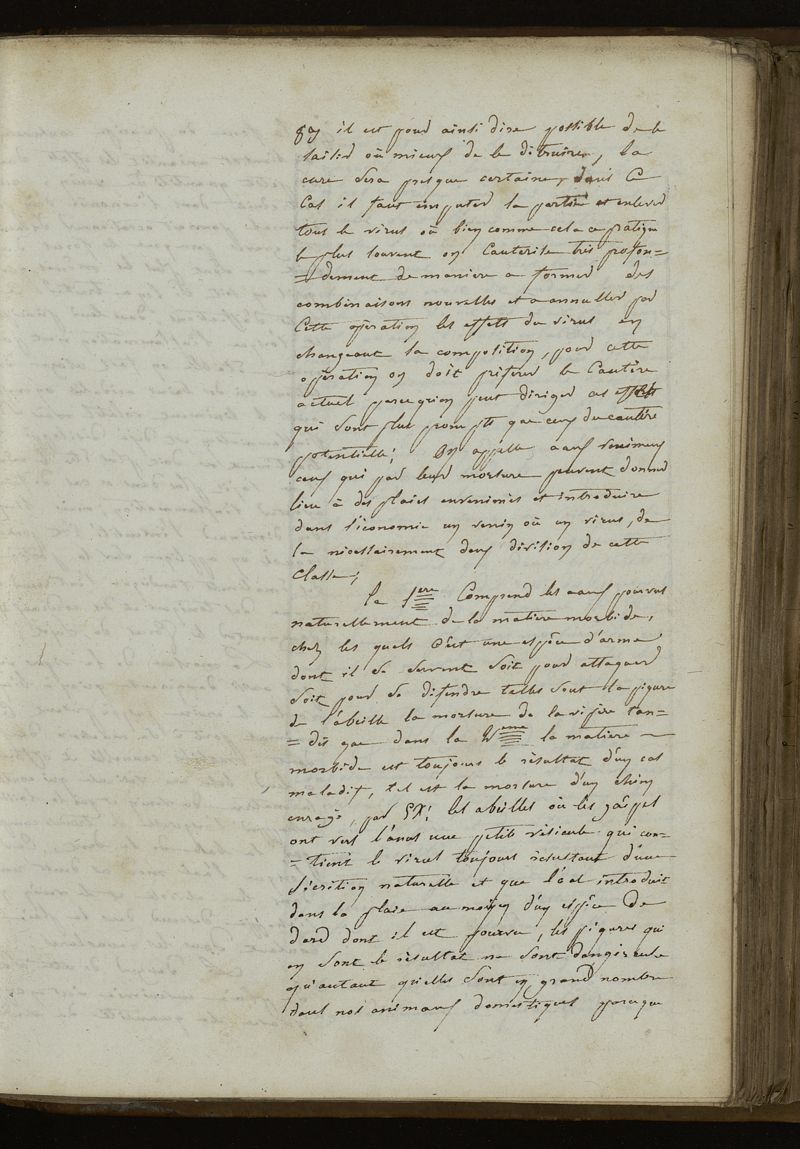 il est pour ainsi dire possible de le
saisir où mieux de le détruire, la
cure sera presque certaine, dans ce
Cas il faut emputer la partie et enlever
tous le virus où bien comme cela ce pratique
le plus souvent on Cauterise très profon=
=dement de maniere a former des
combinaisons nouvelles et a annuller par
Cette opération les effets du virus en
changeant la composition, pour cette
opération on doit préferer le Cautère
actuel parcequon peut diriger ces effets
qui sont plus prompts que ceux du cautère
potentielle; On appelle venimeux
ceux qui par leur morsure peuvent donner
lieu à des plaies envenimés et introduire
dans l'économie un venin où un virus, de
la nécessairement deux division de cette
Classe;
la 1ere Comprend les pourvus
naturellement de la matiere morbide,
chez les quels c'est une espèce d'arme
dont il se servent soit pour attaquer
soit pour se défendre telles sont la piqure
de l'abeille la morsure de la vipère tan=
=dis que dans la eme la matiere
morbide est toujours le résultat d'un cas
maladif, tel est la morsure d'un chien
enragé, par EX! les abeilles où les guêpes
ont vers l'anus une petite vésicule qui con=
=tient le virus toujours résultant d'une
sécrétion naturelle et que introduit
dans la plaie au moyen d'un espèce de
dard dont il est pourvu, les piqures qui
en sont le résultat ne sont dangereuse
qu'autant qu'elles sont en grand nombre
dans nos animaux domestiques parceque